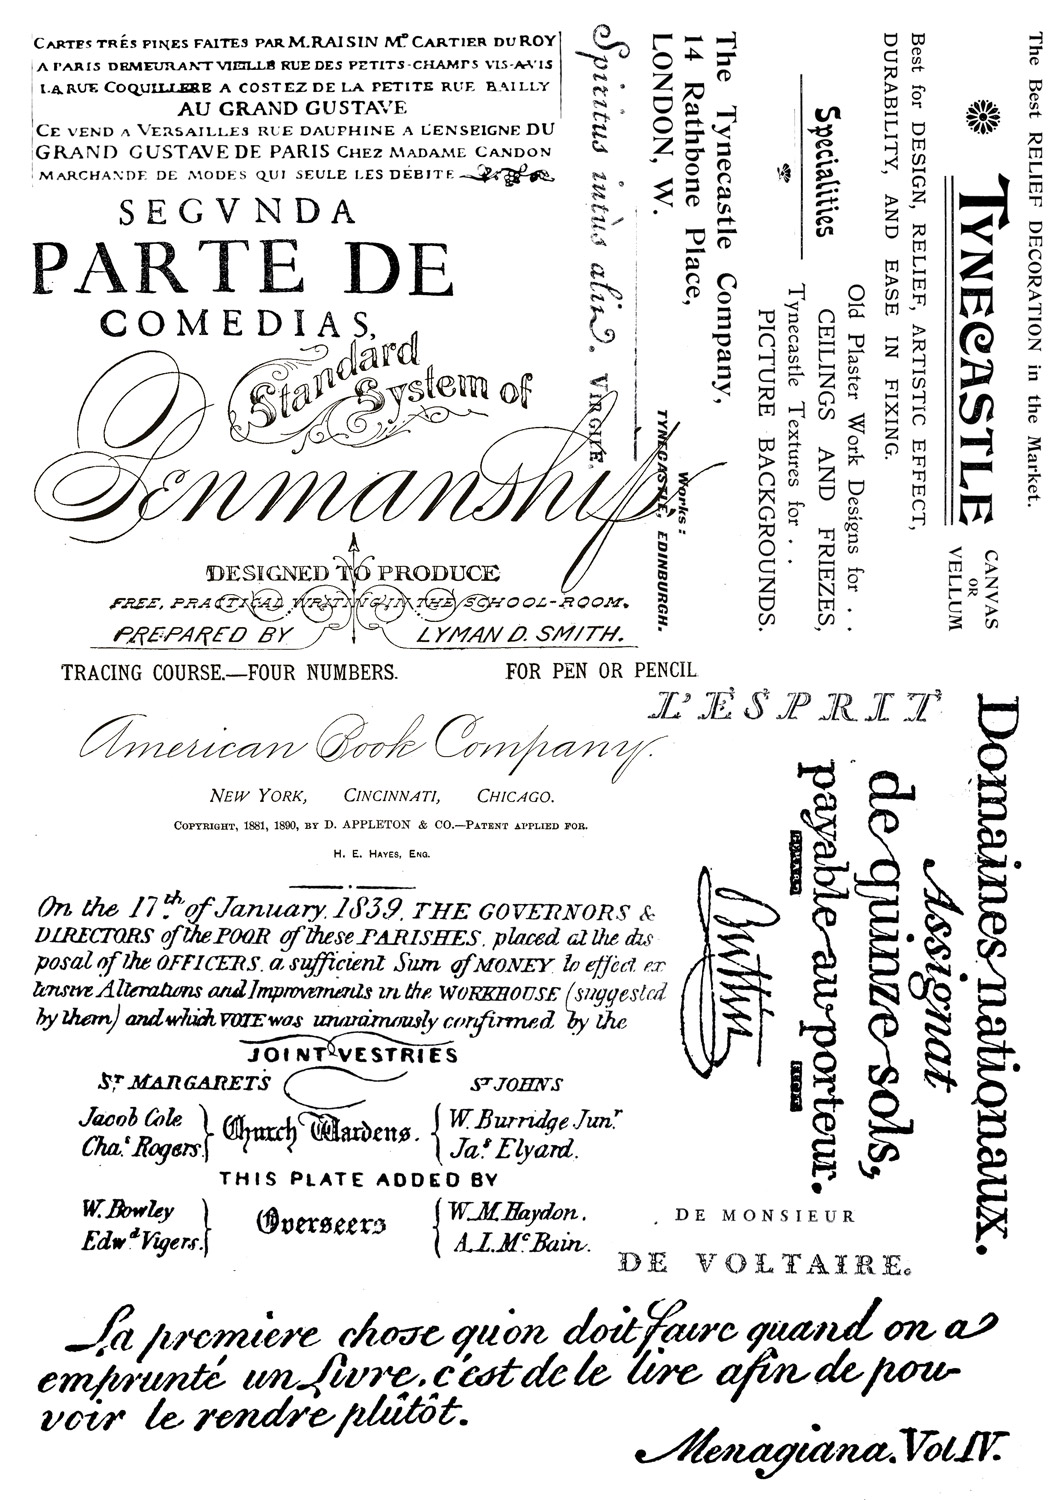 CARTES TRÉS FINES FAITES PAR M.RAISIN Mᴰ CARTIER DU ROY
A PARIS DEMEURANT VIEILLE RUE DES PETITS-CHAMPS VIS-A-VIS
LA RUE COQUILLERE A COSTEZ DE LA PETITE RUE BAILLY
AU GRAND GUSTAVE
CE VEND A VERSAILLES RUE DAUPHINE A L'ENSEIGNE DU
GRAND GUSTAVE DE PARIS CHEZ MADAME CANDON
MARCHANDE DE MODES QUI SEULE LES DÉBITE
SEGVNDA
PARTE DE
COMEDIAS,
Standard
System of
Penmanship
DESIGNED TO PRODUCE
FREE, PRACTICAL WRITING IN THE SCHOOL-ROOM.
PREPARED BY LYMAN D. SMITH.
TRACING COURSE.—FOUR NUMBERS. FOR PEN OR PENCIL
American Book Company.
NEW YORK, CINCINNATI, CHICAGO.
COPYRIGHT, 1881, 1890, BY D. APPLETON & CO.—PATENT APPLIED FOR.
H. E. HAYES, ENG.
Spiritus intùs alit. VIRGILE.
The Best RELIEF DECORATION in the Market.
TYNECASTLE CANVAS
OR
VELLUM
Best for DESIGN, RELIEF, ARTISTIC EFFECT,
DURABILITY, AND EASE IN FIXING.
Specialities
Old Plaster Work Designs for . .
CEILINGS AND FRIEZES,
Tynecastle Textures for . .
PICTURE BACKGROUNDS.
The Tynecastle Company,
14 Rathbone Place,
LONDON, W.
Works:
TYNECASTLE, EDINBURGH.
L'ESPRIT
Domaines nationaux.
Assignat
de quinze sols,
payable au porteur.
DE MONSIEUR
DE VOLTAIRE.
On the 17.th of January, 1839, THE GOVERNORS &
DIRECTORS of the POOR of these PARISHES, placed at the dis
posal of the OFFICERS, a sufficient Sum of MONEY to effect ex
tensive Alterations and Improvements in the WORKHOUSE (suggested
by them) and which VOTE was unanimously confirmed by the
JOINT VESTRIES
ST MARGARETS ST JOHNS
Jacob Cole
Chas Rogers.
Church Wardens.
W. Burridge Junr
Jas Elyard.
THIS PLATE ADDED BY
W. Bowley
Edwd Vigers.
Overseers
W. M. Haydon.
A. I. Mc Bain.
La premiere chose qu'on doit faire quand on a
emprunté un Livre, c'est de le lire afin de pou-
voir le rendre plûtôt.
Menagiana. Vol IV.